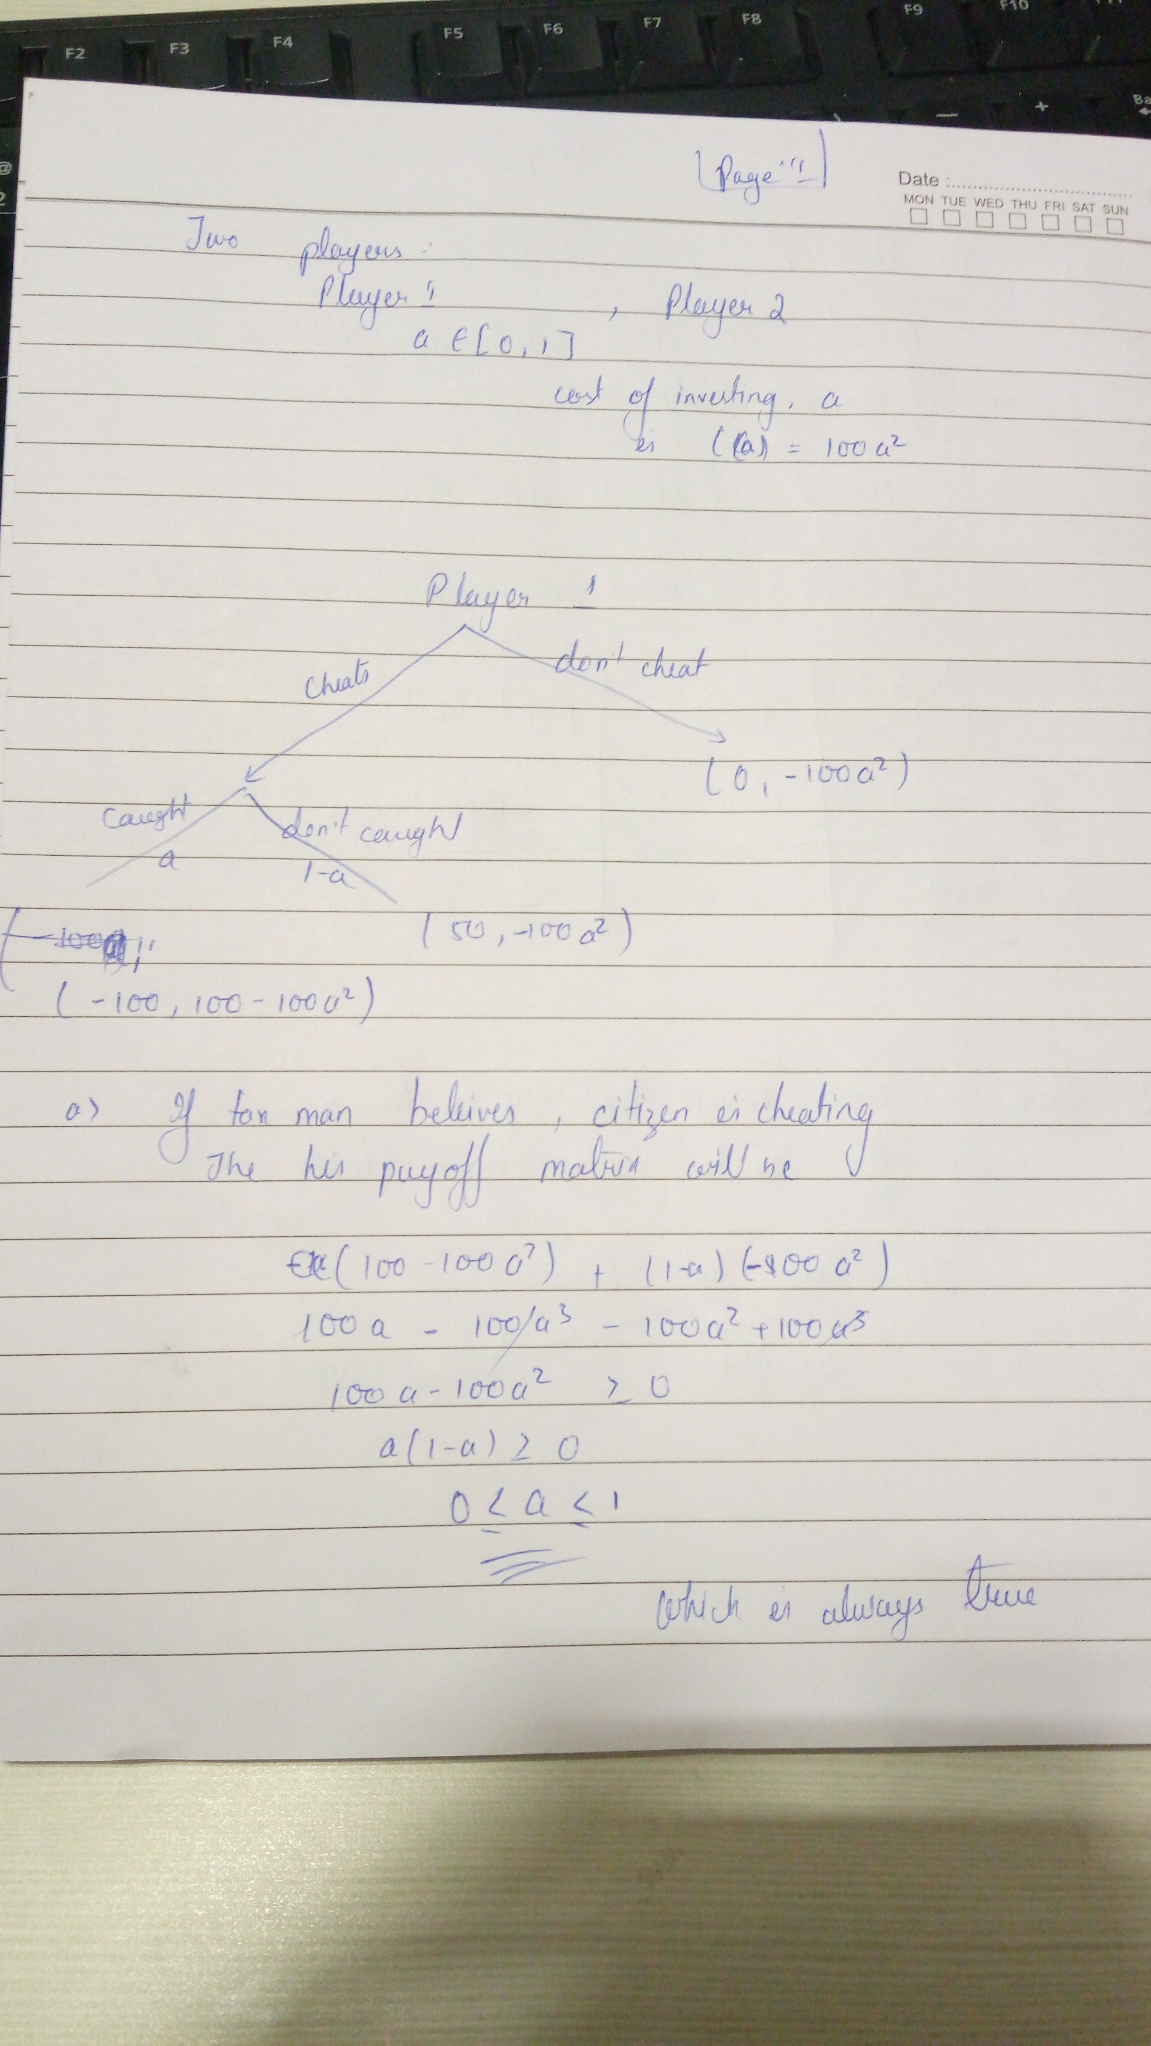 F2 F3 F4 F5 F6 F7 F8 F9 F10
@
2
— +
Ba
Page 1
Date :
MON TUE WED THU FRI SAT SUN
Two players :
Player 1 , Player 2
a ∈ [0, 1]
cost of investing, a
is C(a) = 100a²
Player 1
cheats don't cheat
(0, -100a²)
caught don't caught
a 1-a
(50, -100a²)
(-100, 100-100a²)
a> If tax man beleives, citizen is cheating
The his payoff matrix will be
a(100-100a²) + (1-a)(-100a²)
100a - 100a³ - 100a² + 100a³
100a - 100a² ≥ 0
a(1-a) ≥ 0
0 ≤ a ≤ 1
Which is always true